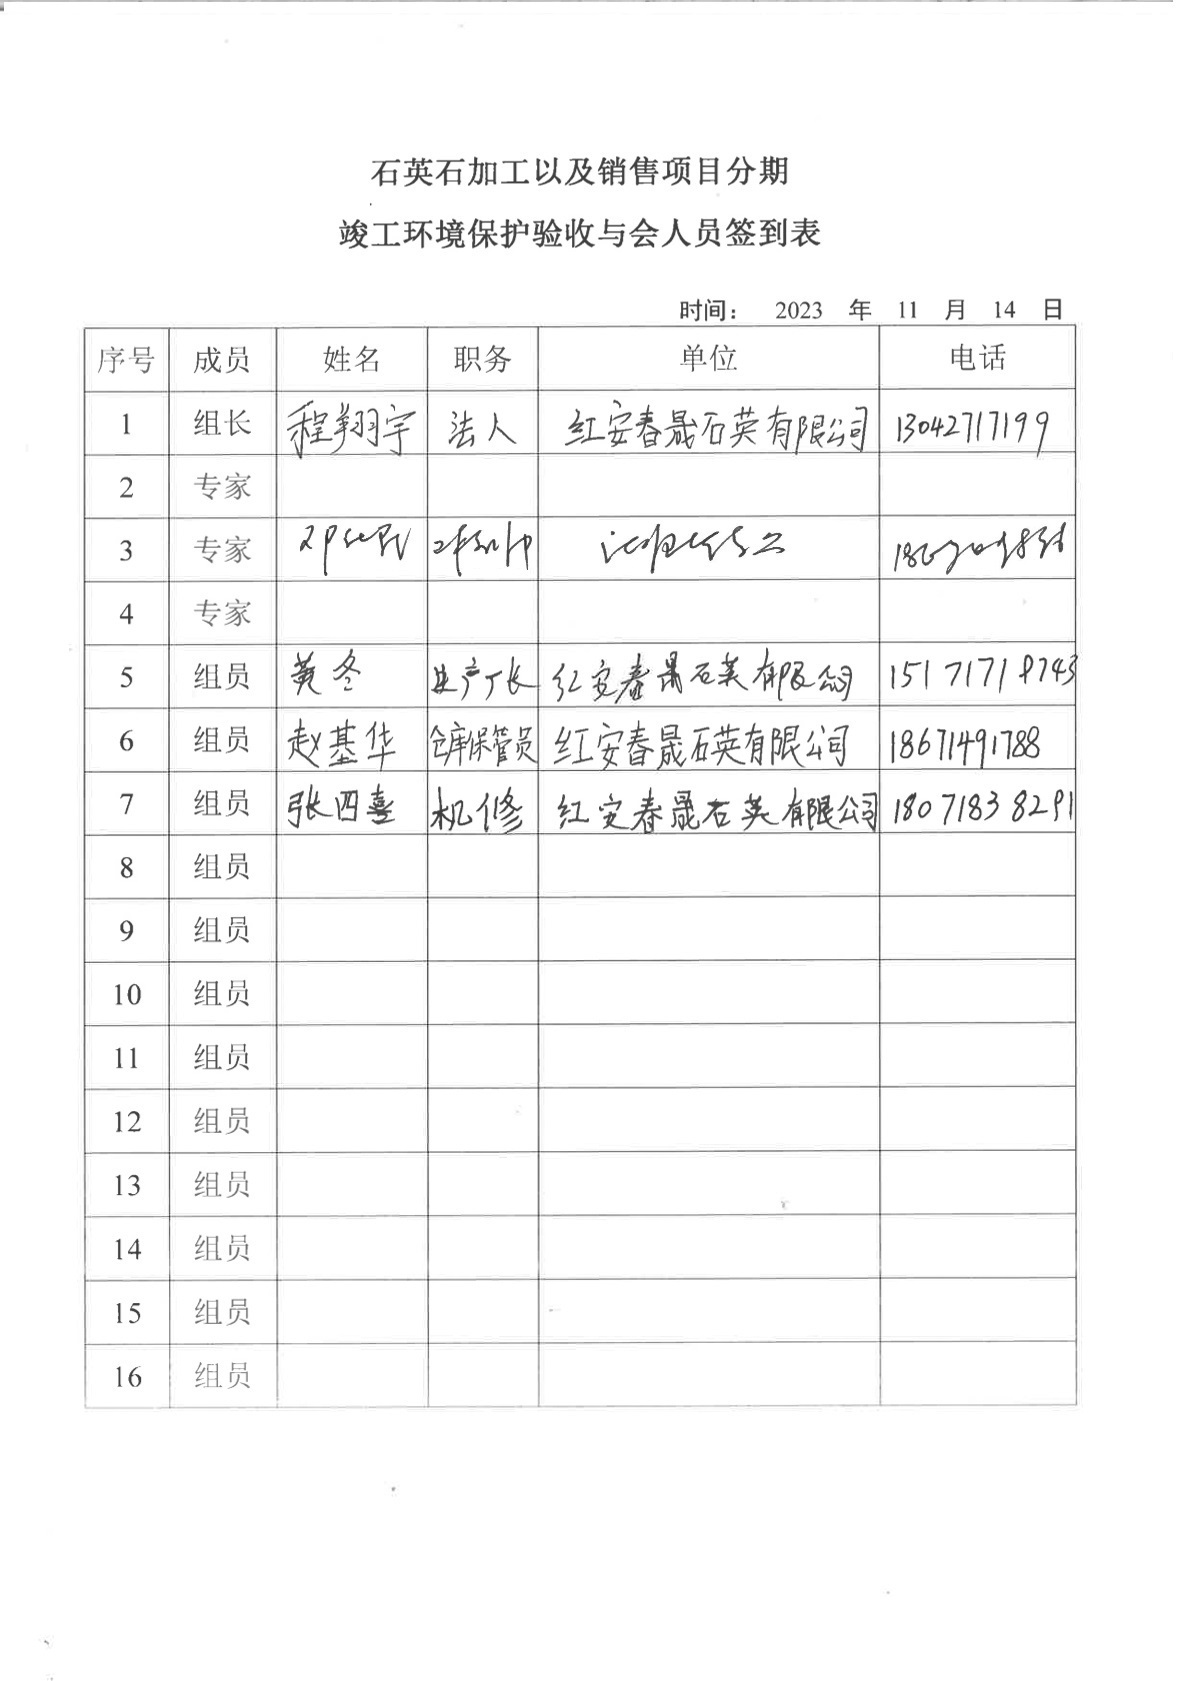 石英石加工以及销售项目分期
竣工环境保护验收与会人员签到表
时间： 2023 年 11 月 14 日
序号 成员 姓名 职务 单位 电话
1 组长 程翔宇 法人 红安春晟石英有限公司 13042717199
2 专家
3 专家
4 专家
5 组员 黄冬 生产厂长 红安春晟石英有限公司 15171718743
6 组员 赵基华 仓库保管员 红安春晟石英有限公司 18671491788
7 组员 张四喜 机修 红安春晟石英有限公司 18071838291
8 组员
9 组员
10 组员
11 组员
12 组员
13 组员
14 组员
15 组员
16 组员